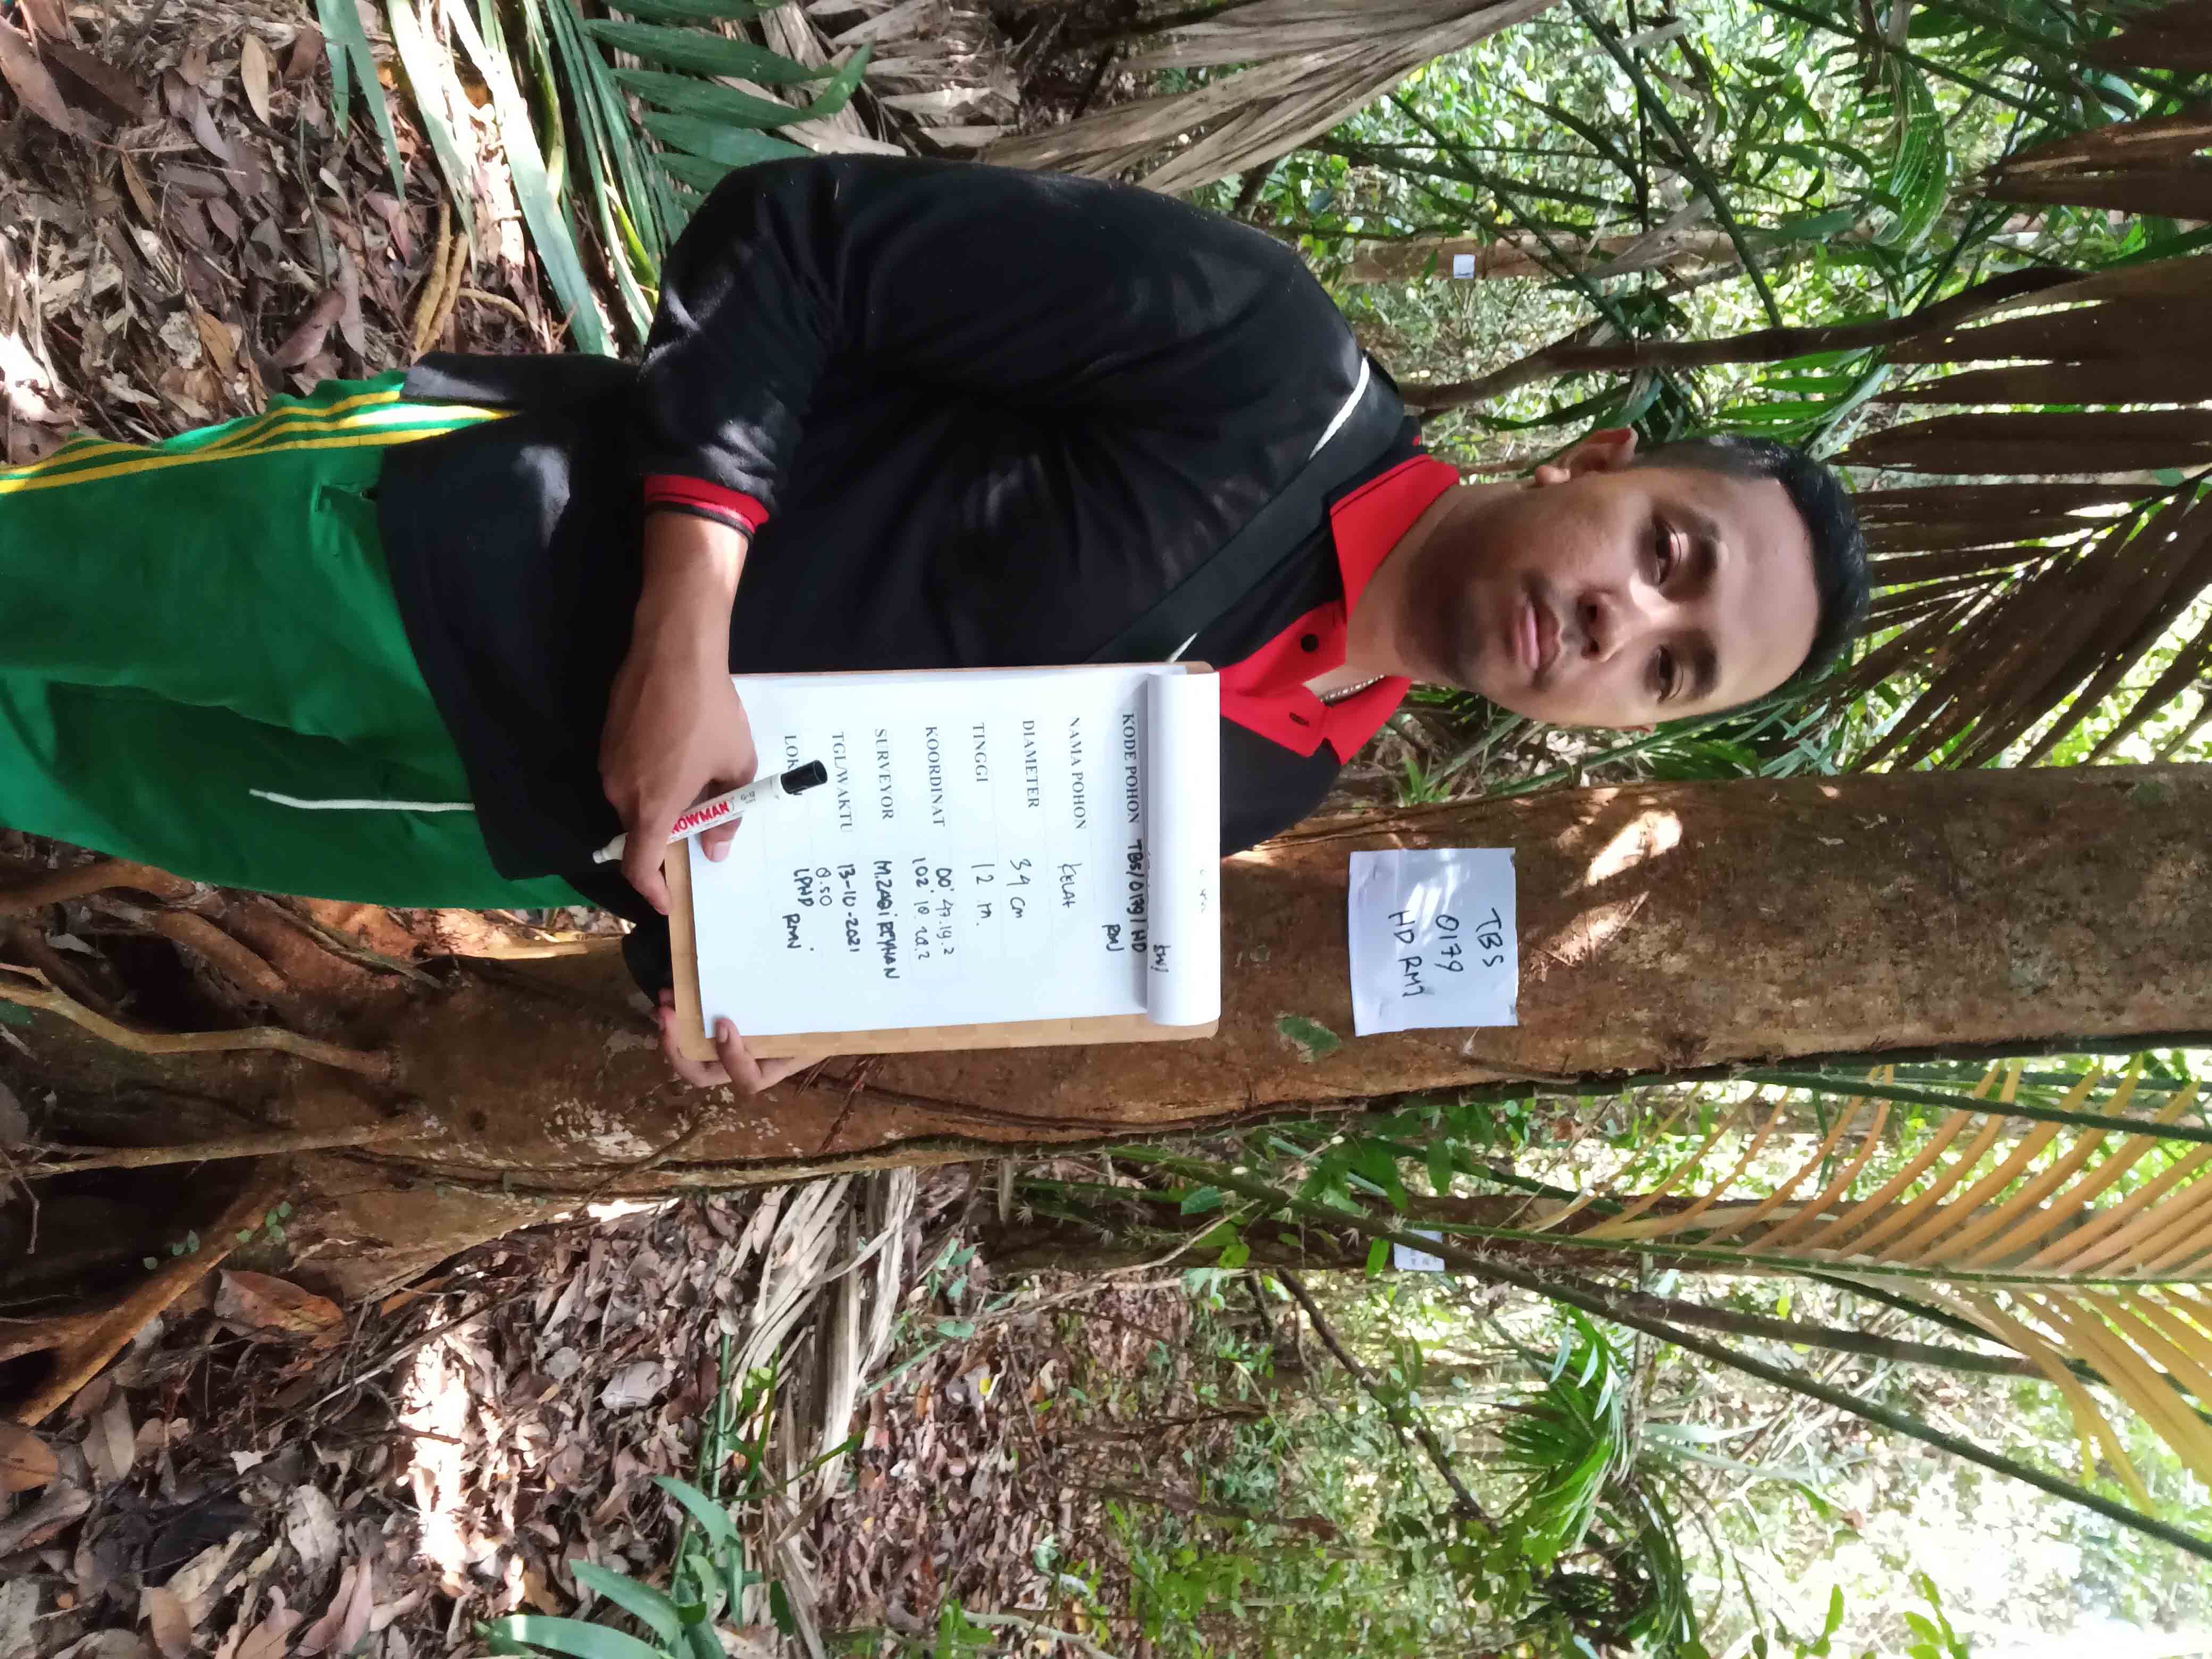 TBS
0179
HD RMJ
KODE POHON TBS/0179/HD
RMJ
NAMA POHON KELAT
DIAMETER 34 cm
TINGGI 12 m.
KOORDINAT 00° 47.19.2
102° 18.20.2
SURVEYOR M.ZAQI REYHAN
TGL/WAKTU 13-10-2021
8.50
LPHD
RMJ